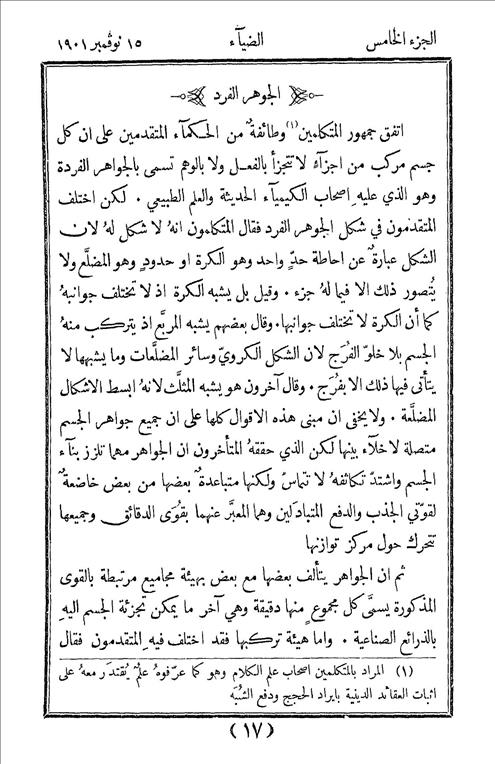 الجزء الخامس الضيآء ١٥ نوڤمبر ١٩٠١
الجوهر الفرد
اتفق جمهور المتكلمين (١) وطائفةٌ من الحكمآء المتقدمين على ان كل
جسم مركب من اجزآء لا تتجزأ بالفعل ولا بالوهم تسمى بالجواهر الفردة
وهو الذي عليهِ اصحاب الكيميآء الحديثة والعلم الطبيعي . لكن اختلف
المتقدمون في شكل الجوهر الفرد فقال المتكلمون انهُ لا شكل لهُ لان
الشكل عبارةٌ عن احاطة حدٍّ واحد وهو الكرة او حدودٍ وهو المضلَّع ولا
يُتصور ذلك الا فيما لهُ جزء . وقيل بل يشبه الكرة اذ لا تختلف جوانبهُ
كما أن الكرة لا تختلف جوانبها . وقال بعضهم يشبه المربَّع اذ يتركب منهُ
الجسم بلا خلوّ الفُرَج لان الشكل الكرويّ وسائر المضلَّعات وما يشبهها لا
يتأتى فيها ذلك الا بفُرَج . وقال آخرون هو يشبه المثلَّث لانهُ ابسط الاشكال
المضلَّعة . ولا يخفى ان مبنى هذه الاقوال كلها على ان جميع جواهر الجسم
متصلة لا خلآء بينها لكن الذي حققهُ المتأخرون ان الجواهر مهما تلزز بنآء
الجسم واشتدّ تكاثفهُ لا تتماسّ ولكنها متباعدةٌ بعضها من بعض خاضعةٌ
لقوَّتي الجذب والدفع المتبادلين وهما المعبَّر عنهما بقُوَى الدقائق وجميعها
تتحرك حول مركز توازنها
ثم ان الجواهر يتألف بعضها مع بعض بهيئة مجاميع مرتبطة بالقوى
المذكورة يسمَّى كل مجموعٍ منها دقيقة وهي آخر ما يمكن تجزئة الجسم اليهِ
بالذرائع الصناعية . واما هيئة تركبها فقد اختلف فيهِ المتقدمون فقال
(١) المراد بالمتكلمين اصحاب علم الكلام وهو كما عرّفوهُ علمٌ يُقتدَر معه على
اثبات العقائد الدينية بايراد الحجج ودفع الشُبَه
(١٧)